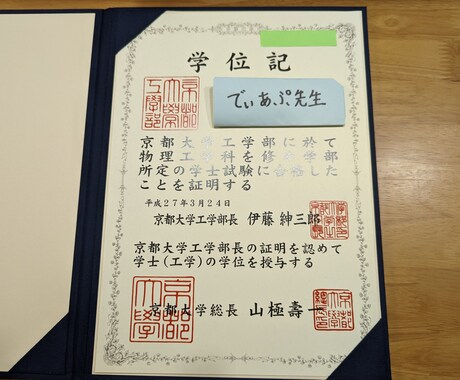 学位記
でぃあぷ先生
京都大学工学部に於て
物理工学科を修め学部
所定の学士試験に合格した
ことを証明する
平成27年3月24日
京都大学工学部長 伊藤紳三郎
京都大学工学部長の証明を認めて
学士(工学)の学位を授与する
京都大学総長 山極壽一
京都大学工學部
京都大學